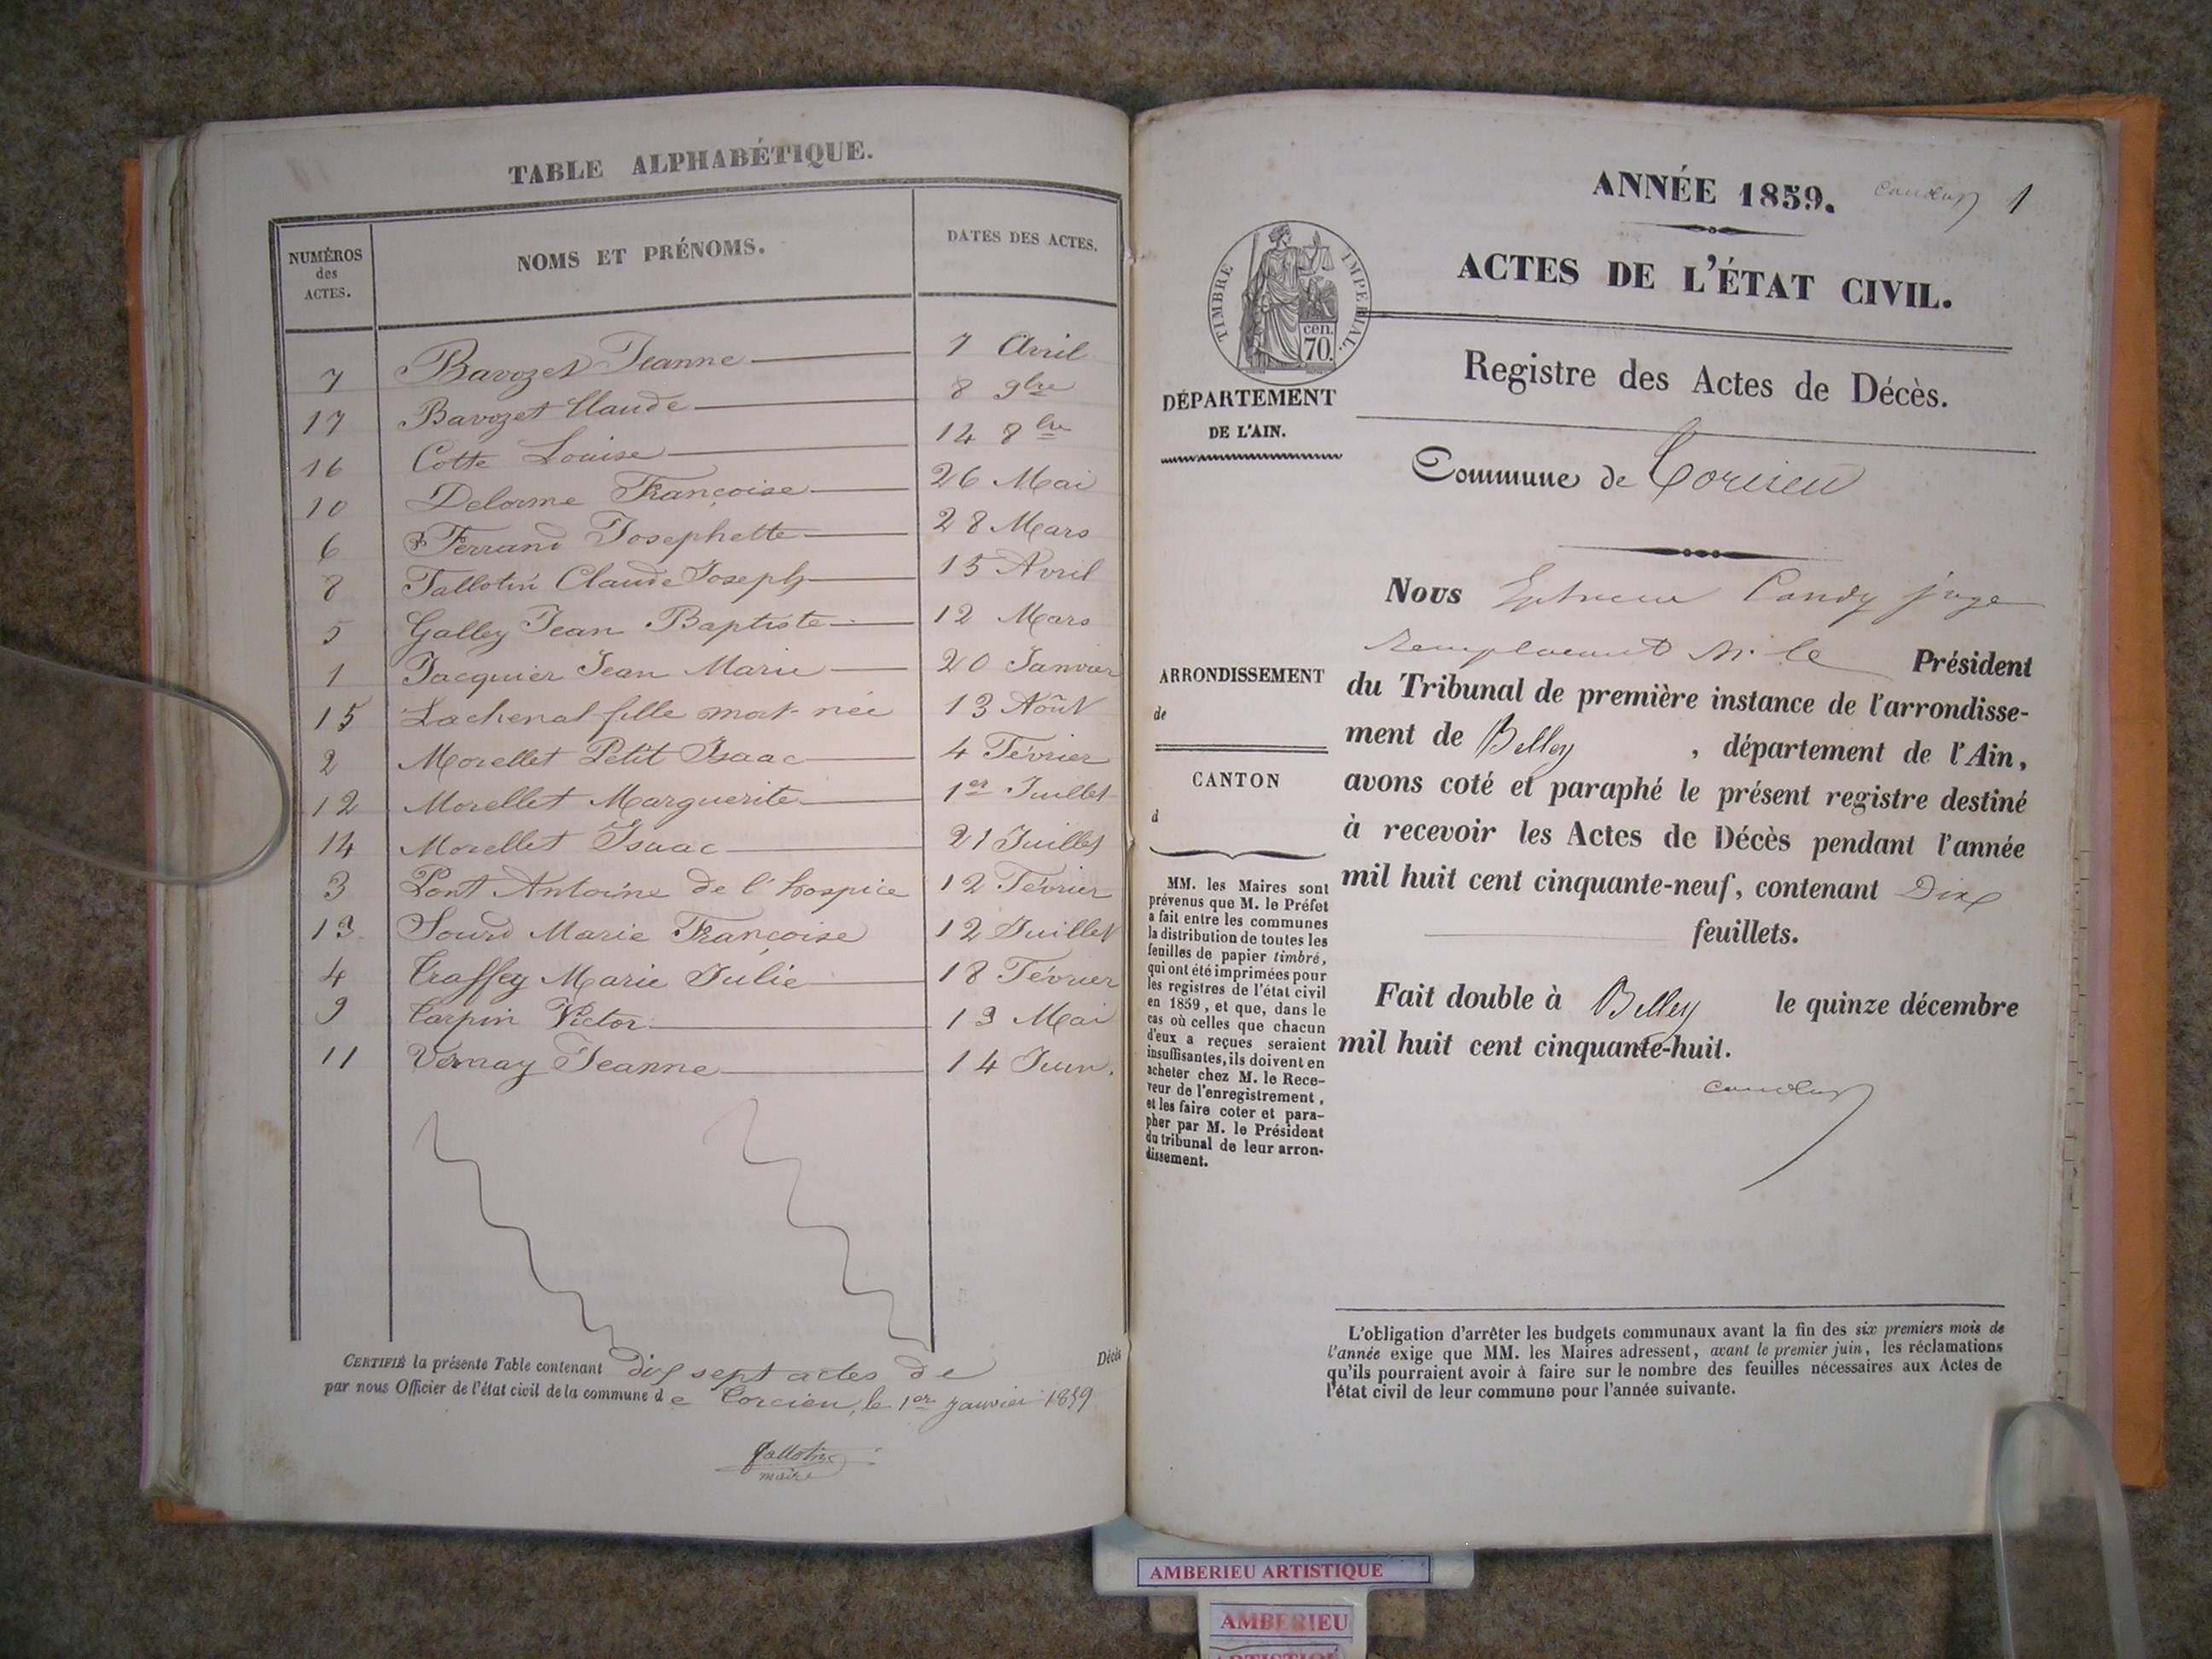 TABLE ALPHABÉTIQUE.
NUMÉROS des ACTES. NOMS ET PRÉNOMS. DATES DES ACTES.
7 Bavozet Jeanne 7 Avril
17 Bavozet Claude 8 9bre
16 Cotte Louise 14 8bre
10 Delorme Françoise 26 Mai
6 Ferrand Josephette 28 Mars
8 Fallotin Claude Joseph 15 Avril
5 Galley Jean Baptiste 12 Mars
1 Jacquier Jean Marie 20 Janvier
15 Lachenal fille mort-née 13 Août
2 Morellet Petit Isaac 4 Février
12 Morellet Marguerite 1er Juillet
14 Morellet Isaac 21 Juillet
3 Pont Antoine de l'hospice 12 Février
13 Sourd Marie Françoise 12 Juillet
4 Traffey Marie Julie 18 Février
9 Tarpin Victor 13 Mai
11 Vernay Jeanne 14 Juin.
CERTIFIÉ la présente Table contenant dix sept actes de Décès
par nous Officier de l'état civil de la commune de Torcieu, le 1er Janvier 1859
fallotin
maire
ANNÉE 1859. 1
ACTES DE L'ÉTAT CIVIL.
TIMBRE IMPERIAL.
cen.
70.
Registre des Actes de Décès.
DÉPARTEMENT
DE L'AIN.
Commune de Torcieu
Nous Candy juge
remplacant Mr le Président
du Tribunal de première instance de l'arrondisse-
ment de Belley, département de l'Ain,
avons coté et paraphé le présent registre destiné
à recevoir les Actes de Décès pendant l'année
mil huit cent cinquante-neuf, contenant Dix
feuillets.
Fait double à Belley le quinze décembre
mil huit cent cinquante-huit.
ARRONDISSEMENT
de
CANTON
d
MM. les Maires sont
prévenus que M. le Préfet
a fait entre les communes
la distribution de toutes les
feuilles de papier timbré,
qui ont été imprimées pour
les registres de l'état civil
en 1859, et que, dans le
cas où celles que chacun
d'eux a reçues seraient
insuffisantes, ils doivent en
acheter chez M. le Rece-
veur de l'enregistrement,
et les faire coter et para-
pher par M. le Président
du tribunal de leur arron-
dissement.
L'obligation d'arrêter les budgets communaux avant la fin des six premiers mois de
l'année exige que MM. les Maires adressent, avant le premier juin, les réclamations
qu'ils pourraient avoir à faire sur le nombre des feuilles nécessaires aux Actes de
l'état civil de leur commune pour l'année suivante.
AMBERIEU ARTISTIQUE
AMBERIEU
ARTISTIQUE